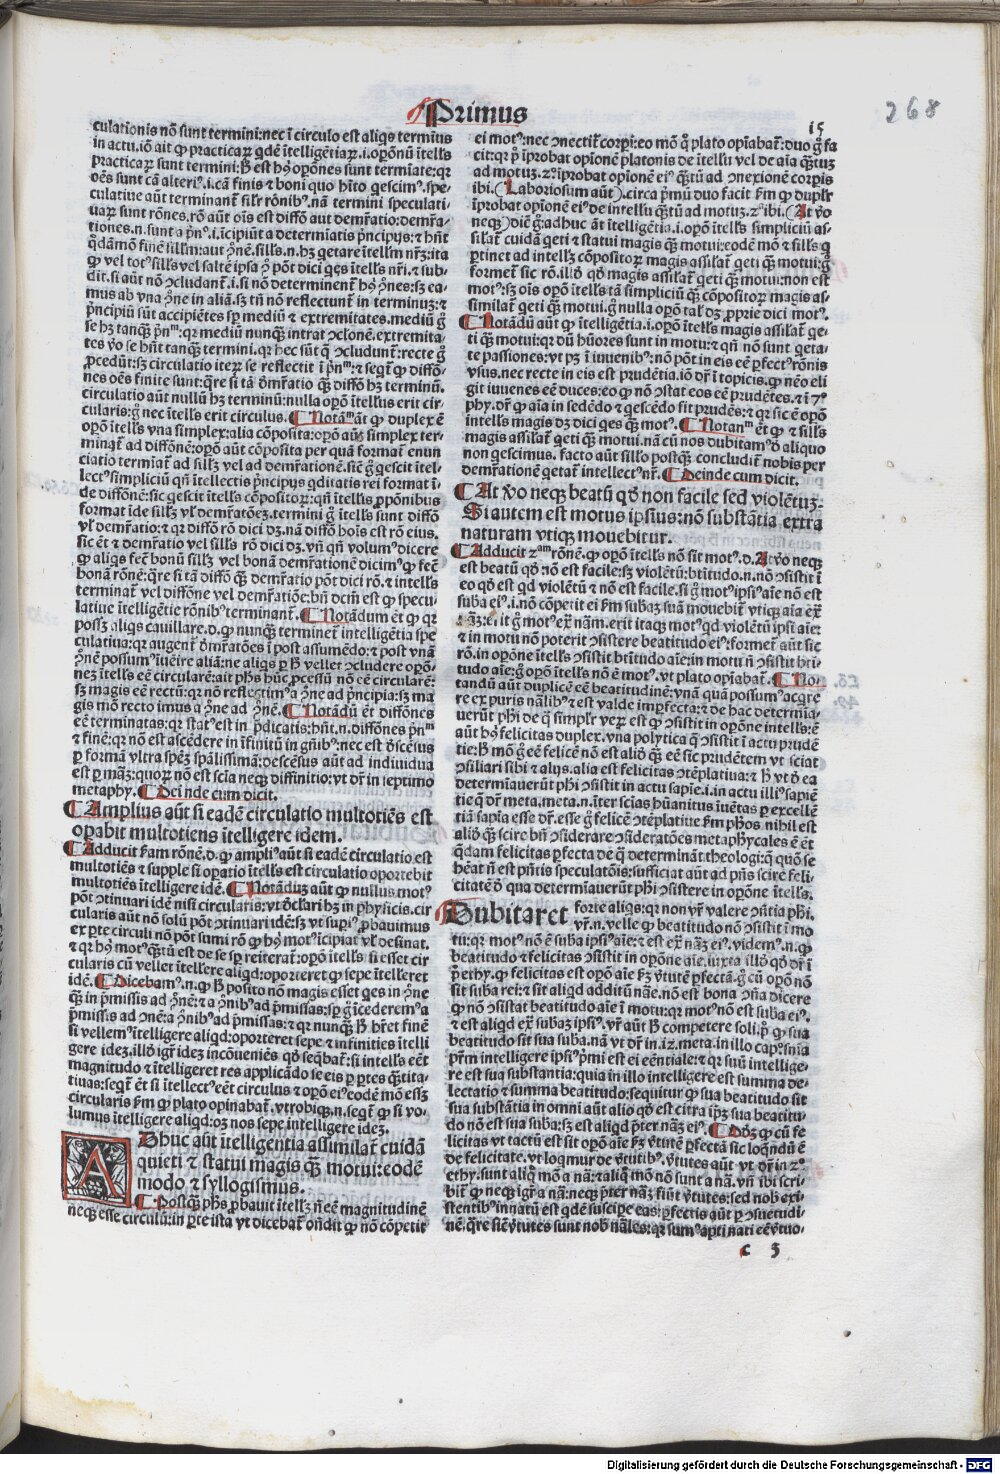 Primus
15
268
culationis nō sunt termini: nec ī circulo est aliqs terminus
in actu. iō ait ꝙ practicaꝝ qdē ītelligētiaꝝ .i. opōnū ītells
practicaꝝ sunt termini: Ꞵ est hꝰ opōnes sunt termiate: qꝛ
oēs sunt cā alteriꝰ .i. cā finis ⁊ boni quo hīto qescimꝰ. spe-
culatiue aūt terminant̄ silr̄ rōnibꝰ. nā termini speculati-
uaꝝ sunt rōnes. rō aūt oīs est diffō aut demr̄atio: demr̄a-
tiones .n. sunt a pⁿ°. i. īcipiūt a determiatis pncipijs: ⁊ hn̄t
qdāmō finē sillm: aut ꝯnē. sills .n. hꝫ qetare ītellm nr̄ꝫ: ita
ꝙ vel totꝰ sills vel saltē ipsa ꝯ pōt dici qes ītells nr̄i. ⁊ sub-
dit. si aūt nō ꝯcludant̄ .i. si nō determinent̄ hꝰ ꝯnes: sꝫ ea-
mus ab vna ꝯne in aliā. sꝫ tn̄ nō reflectunt̄ in terminuꝫ: ⁊
pncipiū sūt accipiētes sp̄ mediū ⁊ extremitates. mediū g̊
se hꝫ tanqꝫ pnᵐ: qꝛ mediū nunqꝫ intrat ꝯclonē. extremita-
tes v̊o se hn̄t tanqꝫ termini. qꝛ hec sūt q ꝯcludunt̄: recte g̊
ꝓcedūt: sꝫ circulatio iteꝝ se reflectit ī pnᵐ: ⁊ seqt̄ ꝙ diffō-
nes oēs finite sunt: q̄re si tā dm̄ratio qꝫ diffō hꝫ terminū.
circulatio aūt nullū hꝫ terminū: nulla opō ītellus erit cir-
cularis: g̊ nec ītells erit circulus. ¶ Notāᵐ āt ꝙ duplex ē
opō ītells vna simplex: alia cōposita: opō aūꝫ simplex ter-
minat̄ ad diffōnē: opō aūt cōposita per quā format̄ enun
ciatio terminat̄ ad sillꝫ vel ad demr̄ationē. sic g̊ qescit itel-
lectꝰ simpliciū qn̄ ītellectis pncipijs qditatis rei format ī-
de diffōnē: sic qescit ītells cōpositoꝝ: qn̄ ītells ꝓpōnibus
format īde sillꝫ vl̄ demr̄atōeꝫ. termini g̊ ītells sunt diffō
vl̄ demr̄atio: ⁊ qꝛ diffō rō dici dꝫ. nā diffō hoīs est rō eius.
sic ēt ⁊ demr̄atio vel sills rō dici dꝫ. vn̄ qn̄ volumꝰ dicere
ꝙ aliqs fec̄ bonū sillꝫ vel bonā demr̄ationē dicimꝰ ꝙ fec̄
bonā rōnē: q̄re si tā diffō qꝫ demr̄atio pōt dici rō. ⁊ intells
terminat̄ vel diffōne vel demr̄atiōe: bn̄ dcm̄ est ꝙ specu-
latiue ītelligētie rōnibꝰ terminant̄. ¶ Notādum ēt ꝙ qꝛ
possꝫ aliqs cauillare. d. ꝙ nunqꝫ terminet̄ intelligētia spe
culatiua: qꝛ augent̄ dm̄ratōes ī post assumēdo: ⁊ post vnā
ꝯnē possumꝰ īuēire aliā: ne aliqs ꝑ Ꞵ vellet ꝯcludere opō-
neꝫ ītells eē circularē: ait phs huc ꝓcessū nō eē circularē:
sꝫ magis eē rectū: qꝛ nō reflectimꝰ a ꝯne ad pncipia: sꝫ ma
gis mō recto imus a ꝯne ad ꝯnē. ¶ Notādū ēt diffōnes
eē terminatas: qꝛ statꝰ est in pdicatis: hn̄t .n. diffōnes pnᵐ
⁊ finē: qꝛ nō est ascēdere in īfinitū in gn̄ibꝰ: nec est d̄scēsus
ꝑ formā vltra spēꝫ spālissimā: descēsus aūt ad indiuidua
est ꝑ māꝫ: quoꝝ nō est scīa neqꝫ diffinitio: vt dr̄ in septimo
metaphy. ¶ Deinde cum dicit.
¶ Amplius aūt si eadē circulatio multotiēs est
oꝑabit multotiens ītelligere idem.
¶ Adducit ꝼam rōnē. d. ꝙ ampliꝰ aūt si eadē circulatio est
multotiēs ⁊ supple si opatio ītells est circulatio oportebit
multotiēs ītelligere idē. ¶ Notāduꝫ aūt ꝙ nullus motꝰ
pōt ꝯtinuari idē nisi circularis: vt d̄clari hꝫ in physicis. cir
cularis aūt nō solū pōt ꝯtinuari idē: sꝫ vt supiꝰ ꝓbauimus
ex ꝑte circuli nō pōt sumi rō ꝙ hꝰ motꝰ īcipiat vl̄ desinat.
⁊ qꝛ hꝰ motꝰ qꝫtū est de se sp̄ reiterat̄: opō ītells si esset cir
cularis cū vellet ītell̄ere aliqd: oporteret ꝙ sepe ītell̄eret
idē. ¶ Dicebamꝰ .n. ꝙ Ꞵ posito nō magis esset qes in ꝯne
qꝫ in pmissis ad ꝯnē: ⁊ a ꝯnibꝰ ad pmissas: sp̄ g̊ īcederemꝰ a
pmissis ad ꝯnē: a ꝯnibꝰ ad pmissas: ⁊ qꝛ nunqꝫ Ꞵ hr̄et finē
si vellemꝰ ītelligere aliqd: oporteret sepe ⁊ infinities ītelli
gere ideꝫ. illd̊ igr̄ ideꝫ incōueniēs qd̊ seqbat̄: si intells eēt
magnitudo ⁊ ītelligeret res applicādo se eis ꝑ ꝑtes qꝫtita-
tiuas: seqt̄ ēt si ītellectꝰ eēt circulus ⁊ opō eiꝰ eodē mō essꝫ
circularis ꝼm ꝙ plato opinabat̄. vtrobiqꝫ .n. seqt̄ ꝙ si vo-
lumus ītelligere aliqd: oꝫ nos sepe intelligere ideꝫ.
ADhuc aūt ītelligentia assimilat̄ cuidā
quieti ⁊ statui magis qꝫ motui: eodē
modo ⁊ syllogismus.
¶ Postqꝫ phs ꝓbauit ītellꝫ n̄ eē magnitudinē
neqꝫ esse circulū: in ꝑte ista vt dicebat̄ on̄dit ꝙ nō cōpetit
ei motꝰ: nec ꝯnectit̄ corpi: eo mō q̊ plato opīabat̄: duo g̊ fa
cit: qꝛ pº īprobat opionē platonis de ītellu vel de aīa qꝫtuꝫ
ad motuꝫ. 2º īprobat opionē eiꝰ qꝫtū ad ꝯnexionē corpis
ibi. (Laboriosum aūt). circa pmū duo facit ꝼm ꝙ duplr̄
īprobat opionē eiꝰ de intellu qꝫtū ad motuꝫ. 2ª ibi. (At v̊o
neqꝫ) diē g̊: adhuc āt ītelligētia .i. opō ītells simpliciū as-
silat̄ cuidā qeti ⁊ statui magis qꝫ motui: eodē mō ⁊ sills q
ꝑtinet ad intellꝫ cōpositoꝝ magis assilat̄ qeti qꝫ motui: g̊
formet̄ sic rō. illd̊ qd̊ magis assilat̄ qeti qꝫ motui: non est
motꝰ: sꝫ oīs opō ītells tā simpliciū qꝫ cōpositoꝝ magis as-
similat̄ qeti qꝫ motui. g̊ nulla opō tal dꝫ ꝓprie dici motꝰ.
¶ Notādū aūt ꝙ ītelligētia .i. opō ītells magis assilat̄ qe-
ti qꝫ motui: qꝛ dū hūores sunt in motu: ⁊ qn̄ nō sunt qeta-
te passiones: vt pꝫ ī iuuenibꝰ: nō pōt in eis eē ꝑfectꝰ rōnis
vsus. nec recte in eis est prudētia. iō dr̄ ī topicis. ꝙ nēo eli
git iuuenes eē duces: eo ꝙ nō ꝯstat eos eē prudētes. ⁊ ī 7º
phy. dr̄ ꝙ aīa in sedēdo ⁊ qescēdo fit prudēs: ⁊ qꝛ sic ē opō
intells magis dꝫ dici qes qꝫ motꝰ. ¶ Notanᵐ ēt ꝙ ⁊ sills
magis assilat̄ qeti qꝫ motui. nā cū nos dubitamꝰ d̄ aliquo
non qescimus. facto aūt sillo postqꝫ concludit̄ nobis per
demr̄ationē qetat̄ intellectꝰ nr̄. ¶ Deinde cum dicit.
¶ At v̊o neqꝫ beatū qd̊ non facile sed violētuꝫ.
Si autem est motus ipsius: nō substātia extra
naturam vtiqꝫ mouebitur.
¶ Adducit 2ᵃᵐ rōnē. ꝙ opō ītells nō sit motꝰ. d. At v̊o neqꝫ
est beatū qd̊ nō est facile: sꝫ violētū: btitudo .n. nō ꝯsistit ī
eo qd̊ est qd violētū ⁊ nō est facile. si g̊ motꝰ ipsiꝰ aīe nō est
suba eiꝰ .i. nō cōpetit ei ꝼm subaꝫ suā mouebit̄ vtiqꝫ aīa ex̄
naꝫ: erit g̊ motꝰ ex̄ nām. erit itaqꝫ motꝰ qd violētū ipsi aīe:
⁊ in motu nō poterit ꝯsistere beatitudo eiꝰ: formet̄ aūt sic
rō. in opōne ītells ꝯsistit btitudo aīe: in motu n̄ ꝯsistit bti-
tudo aīe: g̊ opō ītells nō ē motꝰ. vt plato opīabat̄. ¶ No-
tandū aūt duplicē eē beatitudinē: vnā quā possumꝰ acqre
re ex puris nālibꝰ: ⁊ est valde imꝑfecta: ⁊ de hac determia-
uerūt phi de q simplr̄ veꝝ est ꝙ ꝯsistit in opōne intells: ē
aūt hꝰ felicitas duplex. vna polytica q ꝯsistit ī actu prudē
tie: Ꞵ mō g̊ eē felicē nō est aliō qꝫ eē sic prudētem vt sciat
ꝯsiliari sibi ⁊ alijs. alia est felicitas ꝯtēplatiua: ⁊ Ꞵ vt d̊ ea
determiauerūt phi ꝯsistit in actu sapīe .i. in actu illiꝰ sapiē
tie q dr̄ meta. meta .n. īter scīas hūanitus īuētas ꝑ excellē
tiā sapīa esse dr̄. esse g̊ felicē ꝯtēplatiue ꝼm phos nihil est
aliō qꝫ scire bn̄ ꝯsiderare ꝯsideratōes metaphycales ē ēt
qdam felicitas ꝑfecta de q determināt theologi: q quō se
hēat n̄ est pn̄tis speculatōis: sufficiat aūt ad pn̄s scire feli-
citatē d̊ qua determiauerūt phi ꝯsistere in opōne ītells.
Dubitaret forte aliqs: qꝛ non vr̄ valere ꝯn̄tia phi.
vr̄ .n. velle ꝙ beatitudo nō ꝯsistit ī mo
tu: qꝛ motꝰ nō ē suba ipsiꝰ aīe: ⁊ est ex̄ nāꝫ eiꝰ. videmꝰ .n. ꝙ
beatitudo ⁊ felicitas ꝯsistit in opōne aīe. iuxta illd̊ qd̊ dr̄ ī
pº ethy. ꝙ felicitas est opō aīe ꝼꝫ v̄tutē ꝑfectā. g̊ cū opō nō
sit suba rei: ⁊ sit aliqd additū nāe. nō est bona ꝯn̄a dicere
ꝙ nō ꝯsistat beatitudo aīe ī motu: qꝛ motꝰ nō est suba eiꝰ.
⁊ est aliqd ex̄ subaꝫ ipsiꝰ. vr̄ aūt Ꞵ competere soli pº ꝙ sua
beatitudo sit sua suba. nā vt dr̄ in 12. meta. in illo capº: snīa
pꝛm intelligere ipsiꝰ pmi est ei eēntiale: ⁊ qꝛ suū intellige-
re est sua substantia: quia in illo intelligere est summa de-
lectatio ⁊ summa beatitudo: sequitur ꝙ sua beatitudo sit
sua substātia in omni aūt alio qd̊ est citra ipꝫ sua beatitu-
do nō est sua suba: sꝫ est aliqd pter nāꝫ eiꝰ. ¶ Dōꝫ ꝙ cū fe
licitas vt tactū est sit opō aīe ꝼꝫ v̄tutē ꝑfectā sic loqndū ē
de felicitate. vt loqmur de v̄tutibꝰ. v̄tutes aūt vt dr̄ in 2º
ethy. sunt aliq mō a nā: ⁊ aliq mō nō sunt a nā. vn̄ ibi scri-
bit̄ ꝙ neqꝫ igr̄ a nā: neqꝫ pter nāꝫ fiūt v̄tutes: sed nob̄ exi-
stentibꝰ innatū est qdē suscipe eas: ꝑfectis qūt ꝑ ꝯsuetudi-
nē. q̄re si ēv̄tutes sunt nob̄ nāles: qꝛ sumꝰ apti nati eē v̄tuo-
c 3
Digitalisierung gefördert durch die Deutsche Forschungsgemeinschaft - DFG